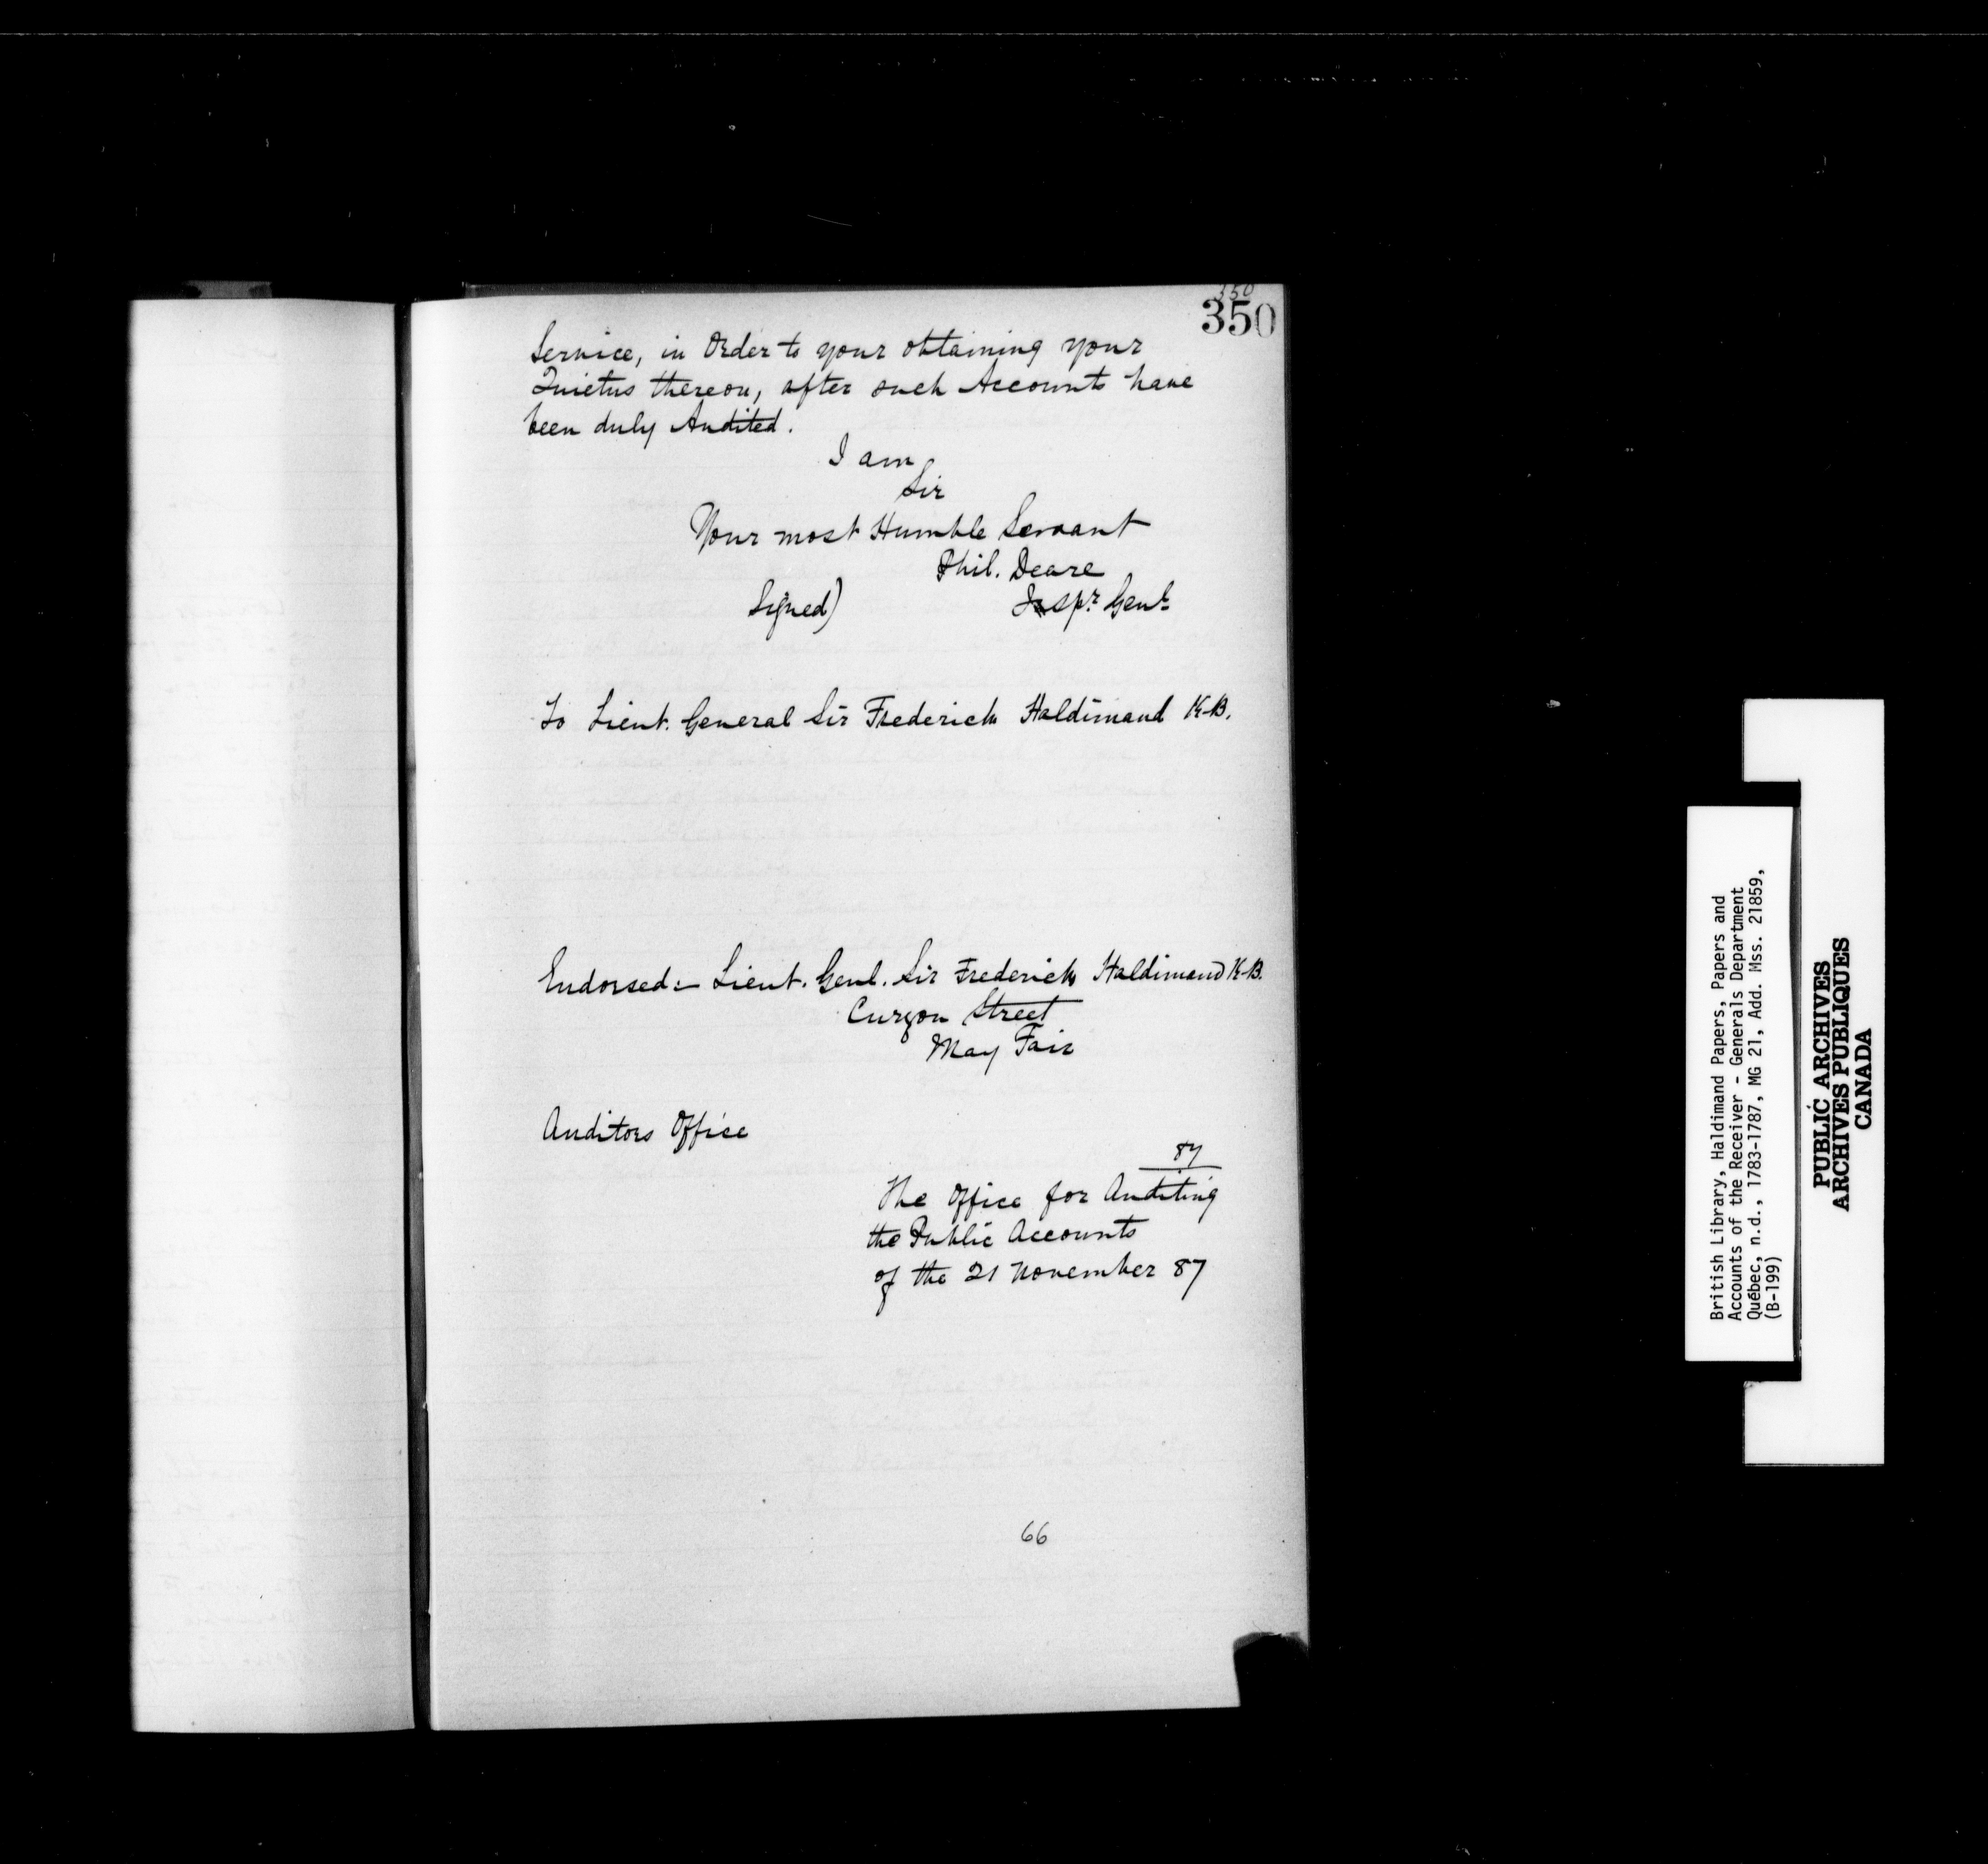 350
350
Service, in Order to your obtaining your
Quietus thereon, after such Accounts have
been duly Audited.
I am
Sir
Your most Humble Servant
Phil. Deare
Signed) Inspr. Genl.
To Lieut. General Sir Frederick Haldimand K.B.
Endorsed:- Lieut. Genl. Sir Frederick Haldimand K.B.
Curzon Street
May Fair
Auditors Office
87
The Office for Auditing
the Public Accounts
of the 21 November 87
66
British Library, Haldimand Papers, Papers and
Accounts of the Receiver - Generals Department
Québec, n.d., 1783-1787, MG 21, Add. Mss. 21859,
(B-199)
PUBLIC ARCHIVES
ARCHIVES PUBLIQUES
CANADA